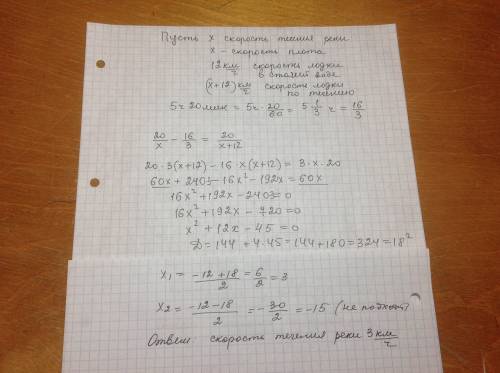 Пусть х скорость течения реки
х - скорость плота
12 км/ч скорость лодки
в стоячей воде
(х+12) км/ч скорость лодки
по течению
5ч 20 мин = 5ч · 20/60 = 5 1/3 ч = 16/3
20/x - 16/3 = 20/(x+12)
20·3(x+12) - 16·x(x+12) = 3·x·20
60x + 240·3 - 16x² - 192x = 60x
16x² + 192x - 240·3 = 0
16x² + 192x - 720 = 0
x² + 12x - 45 = 0
D = 144 + 4·45 = 144 + 180 = 324 = 18²
x₁ = (-12+18)/2 = 6/2 = 3
x₂ = (-12-18)/2 = -30/2 = -15 (не подходит)
Ответ: скорость течения реки 3 км/ч